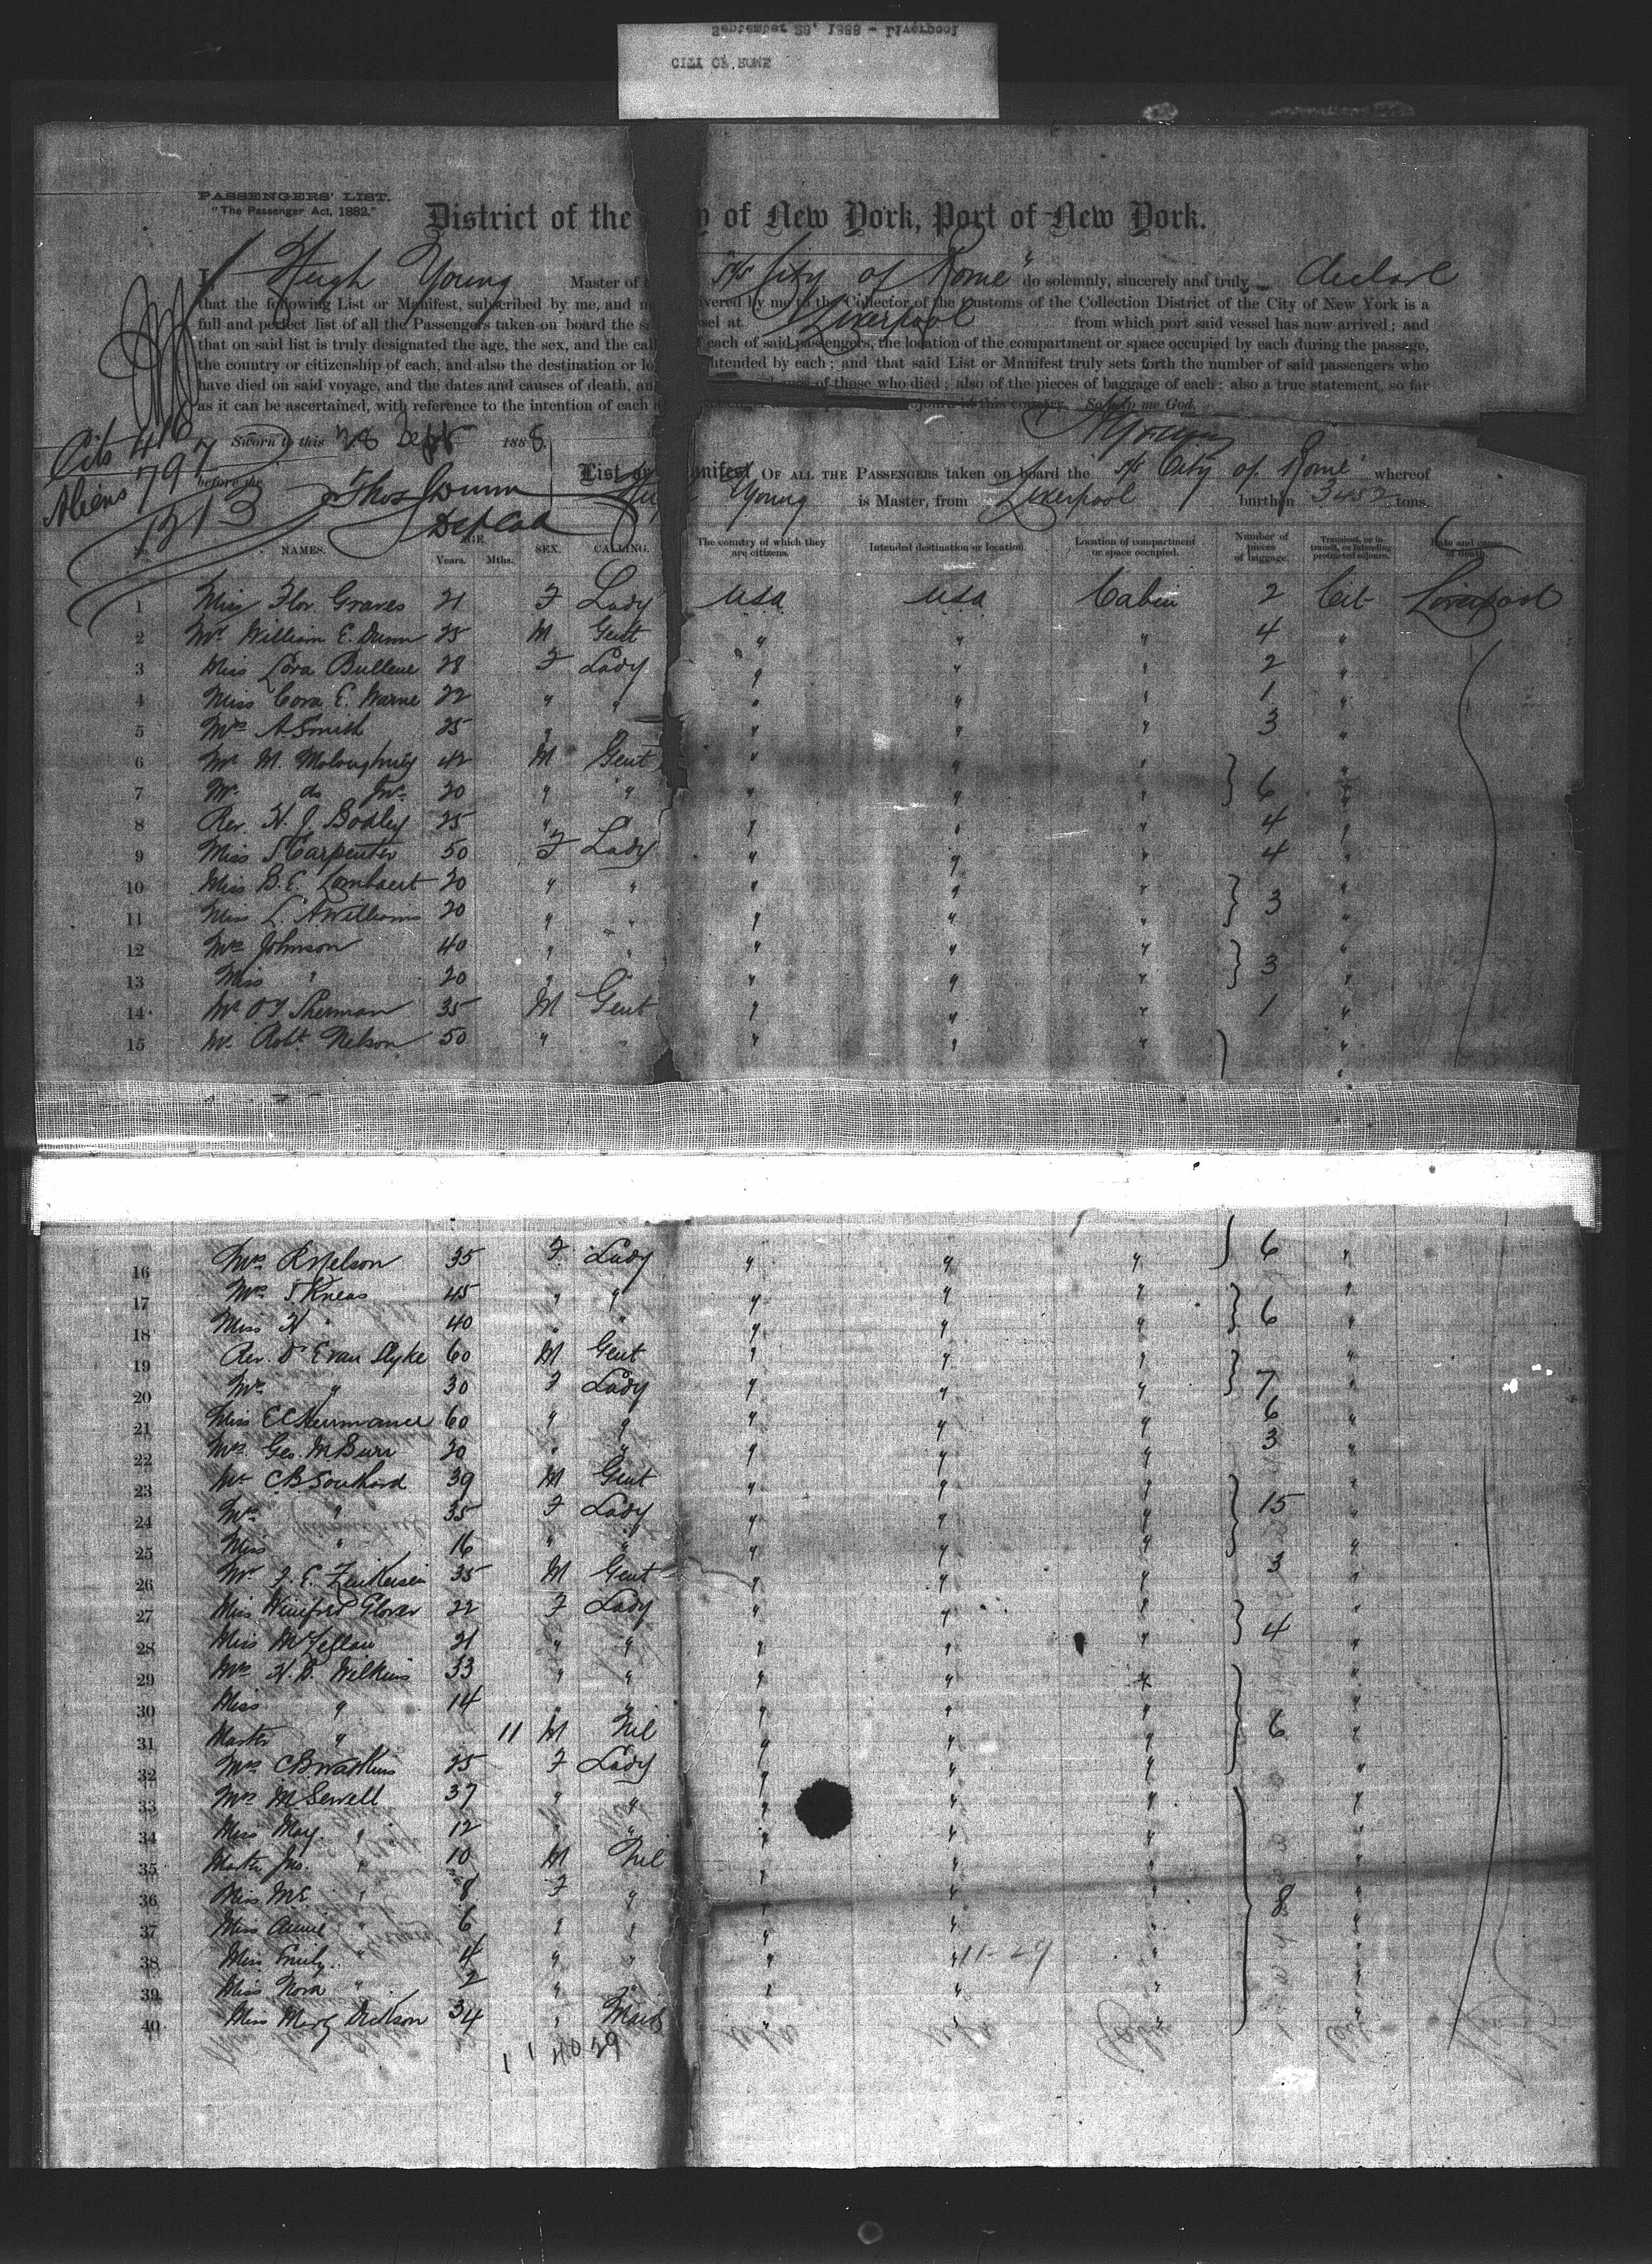 September 28, 1888 - Liverpool
CITY OF ROME
PASSENGERS' LIST.
"The Passenger Act, 1882."
District of the y of New York, Port of New York.
I, Hugh Young Master of SS City of Rome" do solemnly, sincerely and truly declare
that the following List or Manifest, subscribed by me, and vered by me to the Collector of the Customs of the Collection District of the City of New York is a
full and perfect list of all the Passengers taken on board the sel at Liverpool from which port said vessel has now arrived; and
that on said list is truly designated the age, the sex, and the cal each of said passengers, the location of the compartment or space occupied by each during the passage,
the country or citizenship of each, and also the destination or lo ntended by each; and that said List or Manifest truly sets forth the number of said passengers who
have died on said voyage, and the dates and causes of death, an of those who died; also of the pieces of baggage of each; also a true statement, so far
as it can be ascertained, with reference to the intention of each this country. So help me God.
Cits 416
Aliens 797
1213
Sworn to this 28 Sept 1888
HYoung
before me Thos Dunn
Dep Col
List or anifest OF ALL THE PASSENGERS taken on board the SS City of Rome" whereof
Young is Master, from Liverpool burthen 3452 tons.
No. NAMES. AGE. Years. Mths. SEX. CALLING. The country of which they are citizens. Intended destination or location. Location of compartment or space occupied. Number of pieces of baggage. Transient, or in transit, or intending protracted sojourn. Date and cause of death.
1 Miss Flor. Graves 21 F Lady USA USA Cabin 2 Cit Liverpool
2 Mr William E. Dunn 25 M Gent " " " 4 "
3 Miss Lora Bullene 28 F Lady " " " 2 "
4 Miss Cora E. Warne 22 " " " " " 1 "
5 Mrs A. Smith 25 " " " " " 3 "
6 Mr M. Moloughney 42 M Gent " " " "
7 Mr do Jnr 20 " " " " " 6 "
8 Rev. H. J. Bodley 25 " " " " 4 "
9 Miss S Carpenter 50 F Lady " " " 4 "
10 Miss B. E. Lambaert 20 " " " " " "
11 Miss L. A Williams 20 " " " " " 3 "
12 Mrs Johnson 40 " " " " " "
13 Miss " 20 " " " " " 3 "
14 Mr O T Sherman 35 M Gent " " " 1 "
15 Mr Robt Nelson 50 " " " " " "
16 Mrs R Nelson 35 F Lady " " " 6 "
17 Mrs S Kneas 45 " " " " " "
18 Miss H " 40 " " " " " 6 "
19 Rev. D E van Slyke 60 M Gent " " " "
20 Mrs " 30 F Lady " " " 7 "
21 Miss E C Hermance 60 " " " " " 6 "
22 Mrs Geo. M Burr 20 " " " " " 3 "
23 Mr C B Southard 39 M Gent " " " "
24 Mrs " 35 F Lady " " " 15 "
25 Miss " 16 " " " " " "
26 Mr F. E. 35 M Gent " " " 3 "
27 Miss Winifred Glover 22 F Lady " " " "
28 Miss 21 " " " " " 4 "
29 Mrs H. D. Wilkins 33 " " " " " "
30 Miss " 14 " " " " " "
31 Master " 11 M Nil " " " 6 "
32 Mrs C B Watkins 25 F Lady " " " "
33 Mrs M Sewell 37 " " " " " "
34 Miss May " 12 " " " " " "
35 Master Jno. " 10 M Nil " " " "
36 Miss M E " 8 F " " " " 8 "
37 Miss Annie " 6 " " " " " "
38 Miss Emily " 4 " " " " 11-29 " "
39 Miss Nora " 2 " " " " " "
40 Miss Mary Dickson 34 " Maid " " " "
1 1 40 29